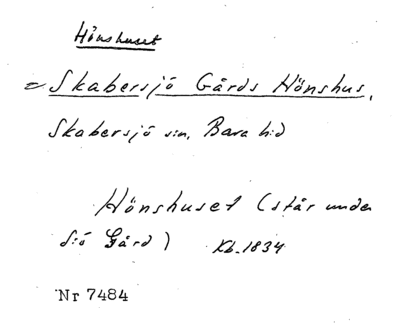 Hönshuset
= Skabersjö Gårds Hönshus,
Skabersjö sn, Bara hd
Hönshuset (står under
S:ö Gård) Kb. 1834
Nr 7484